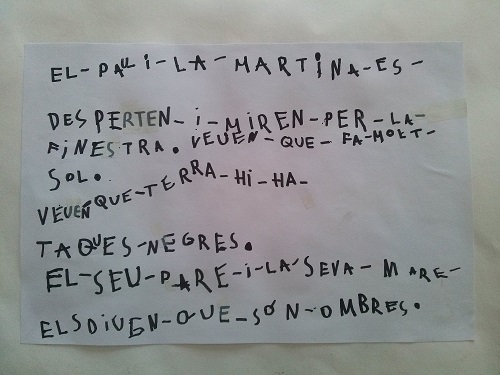 EL-PAU i-LA-MARTiNA-ES-
DESPERTEN-i-MIREN-PER-LA-
FiNESTRA. VEUEN-QUE-FA-MOLT-
SOL.
VEUEN QUE-TERRA-Hi-HA-
TAQUES-NEGRES.
EL-SEU-PARE-i-LA-SEVA-MARE-
ELSDIUEN-QUE-SÓN-OMBRES.